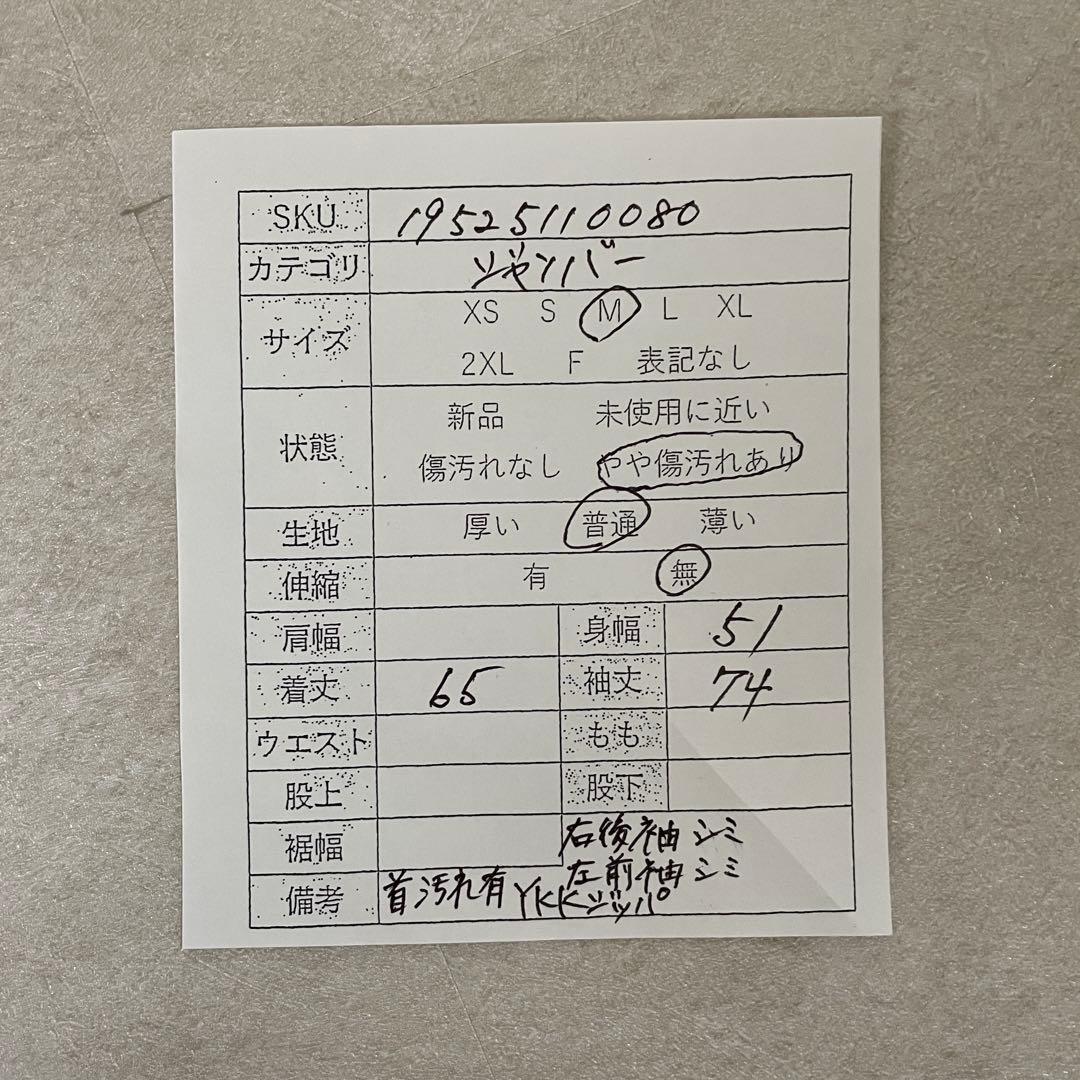 SKU 19525110080
カテゴリ ジャンバー
サイズ XS S M L XL
2XL F 表記なし
状態 新品 未使用に近い
傷汚れなし やや傷汚れあり
生地 厚い 普通 薄い
伸縮 有 無
肩幅 身幅 51
着丈 65 袖丈 74
ウエスト もも
股上 股下
裾幅 右後袖シミ
左前袖シミ
備考 首汚れ有 YKKジッパ